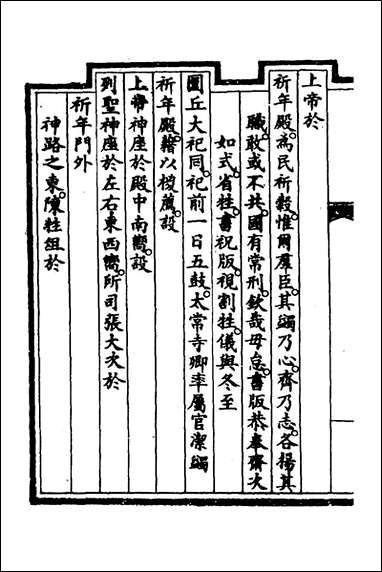 上帝於
祈年殿為民祈穀惟爾羣臣其蠲乃心齊乃志各揚其
職敢或不共國有常刑欽哉毋怠書版恭奉齋次
如式省牲書祝版視割牲儀與冬至
圜丘大祀同祀前一日五鼓太常寺卿率屬官潔蠲
祈年殿藉以椶薦設
上帝神座於殿中南嚮設
列聖神座於左右東西嚮所司張大次於
祈年門外
神路之東陳牲俎於